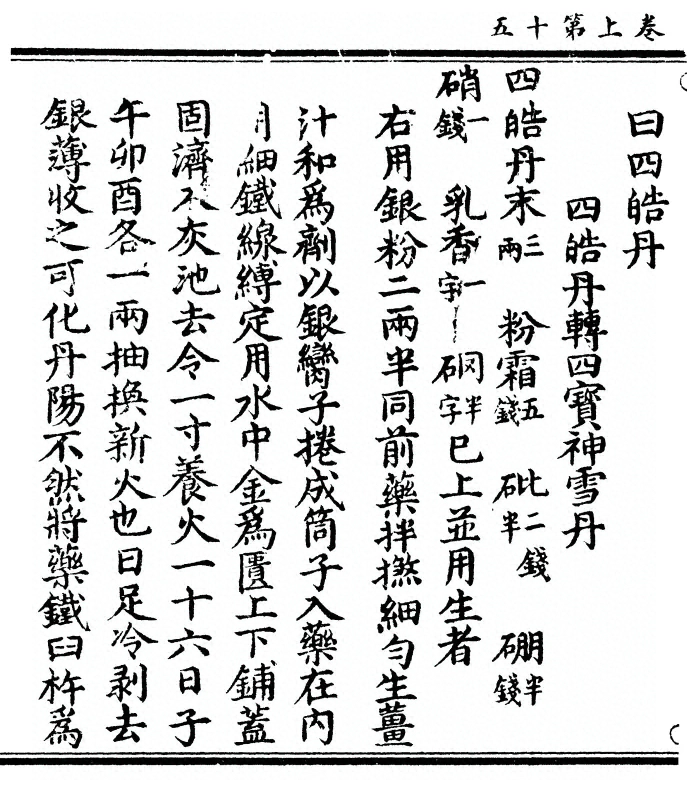 卷上第十五
曰四皓丹
四皓丹轉四寶神雪丹
四皓丹末三兩 粉霜五錢 砒二錢半 硼半錢
硝一錢 乳香一字 硇半字 已上並用生者
右用銀粉二兩半同前藥拌撚細勻生薑
汁和為劑以銀臠子捲成筒子入藥在內
用細鐵線縛定用水中金為匱上下鋪蓋
固濟灰池去令一寸養火一十六日子
午卯酉各一兩抽換新火也日足冷剥去
銀薄收之可化丹陽不然將藥鐵臼杵為